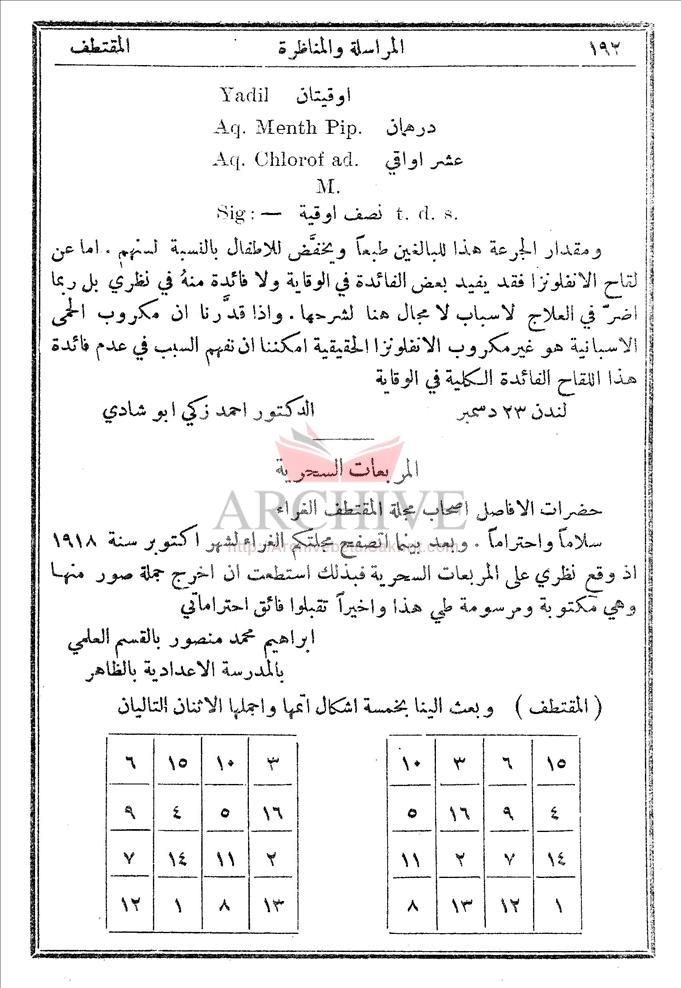 ١٩٢ المراسلة والمناظرة المقتطف
Yadil اوقيتان
Aq. Menth Pip. درهمان
Aq. Chlorof ad. عشر اواقي
M.
Sig: — نصف اوقية t. d. s.
ومقدار الجرعة هذا للبالغين طبعاً ويخفَّض للاطفال بالنسبة لسنهم . اما عن
لقاح الانفلونزا فقد يفيد بعض الفائدة في الوقاية ولا فائدة منهُ في نظري بل ربما
اضرّ في العلاج لاسباب لا مجال هنا لشرحها . واذا قدَّرنا ان مكروب الحمى
الاسبانية هو غير مكروب الانفلونزا الحقيقية امكننا ان نفهم السبب في عدم فائدة
هذا اللقاح الفائدة الكلية في الوقاية
لندن ٢٣ دسمبر الدكتور احمد زكي ابو شادي
المربعات السحرية
ARCHIVE
حضرات الافاضل اصحاب مجلة المقتطف الغراء
سلاماً واحتراماً . وبعد بينما اتصفح مجلتكم الغراء لشهر اكتوبر سنة ١٩١٨
اذ وقع نظري على المربعات السحرية فبذلك استطعت ان اخرج جملة صور منها
وهي مكتوبة ومرسومة طي هذا واخيراً تقبلوا فائق احتراماتي
ابراهيم محمد منصور بالقسم العلمي
بالمدرسة الاعدادية بالظاهر
( المقتطف ) وبعث الينا بخمسة اشكال اتمها واجملها الاثنان التاليان
١٥ ٦ ٣ ١٠
٤ ٩ ١٦ ٥
١٤ ٧ ٢ ١١
١ ١٢ ١٣ ٨
٣ ١٠ ١٥ ٦
١٦ ٥ ٤ ٩
٢ ١١ ١٤ ٧
١٣ ٨ ١ ١٢